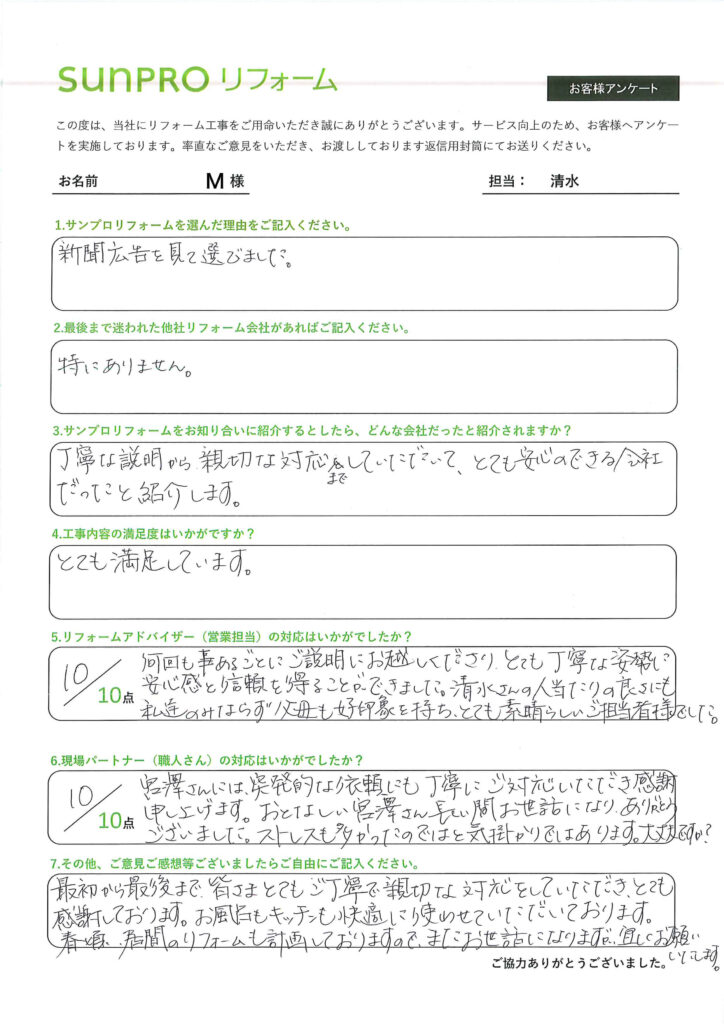 sunPRO リフォーム
お客様アンケート
この度は、当社にリフォーム工事をご用命いただき誠にありがとうございます。サービス向上のため、お客様へアンケー
トを実施しております。率直なご意見をいただき、お渡ししております返信用封筒にてお送りください。
お名前 M 様 担当： 清水
1.サンプロリフォームを選んだ理由をご記入ください。
新聞広告を見て選びました。
2.最後まで迷われた他社リフォーム会社があればご記入ください。
特にありません。
3.サンプロリフォームをお知り合いに紹介するとしたら、どんな会社だったと紹介されますか？
丁寧な説明から親切な対応までしていただいて、とても安心のできる会社
だったと紹介します。
4.工事内容の満足度はいかがですか？
とても満足しています。
5.リフォームアドバイザー（営業担当）の対応はいかがでしたか？
10/10点
何回も事あるごとにご説明にお越しくださり、とても丁寧な姿勢に
安心感と信頼を得ることができました。清水さんの人当たりの良さにも
私達のみならず父母も好印象を持ち、とても素晴らしいご担当者様でした。
6.現場パートナー（職人さん）の対応はいかがでしたか？
10/10点
宮澤さんには、突発的な依頼にも丁寧にご対応いただき感謝
申し上げます。おとなしい宮澤さん長い間お世話になり、ありがとう
ございました。ストレスも多かったのではと気掛かりではあります。大丈夫ですか？
7.その他、ご意見ご感想等ございましたらご自由にご記入ください。
最初から最後まで、皆さまとてもご丁寧で親切な対応をしていただき、とても
感謝しております。お風呂もキッチンも快適に使わせていただいております。
春頃、居間のリフォームも計画しておりますので、またお世話になりますが、宜しくお願い
いたします。
ご協力ありがとうございました。